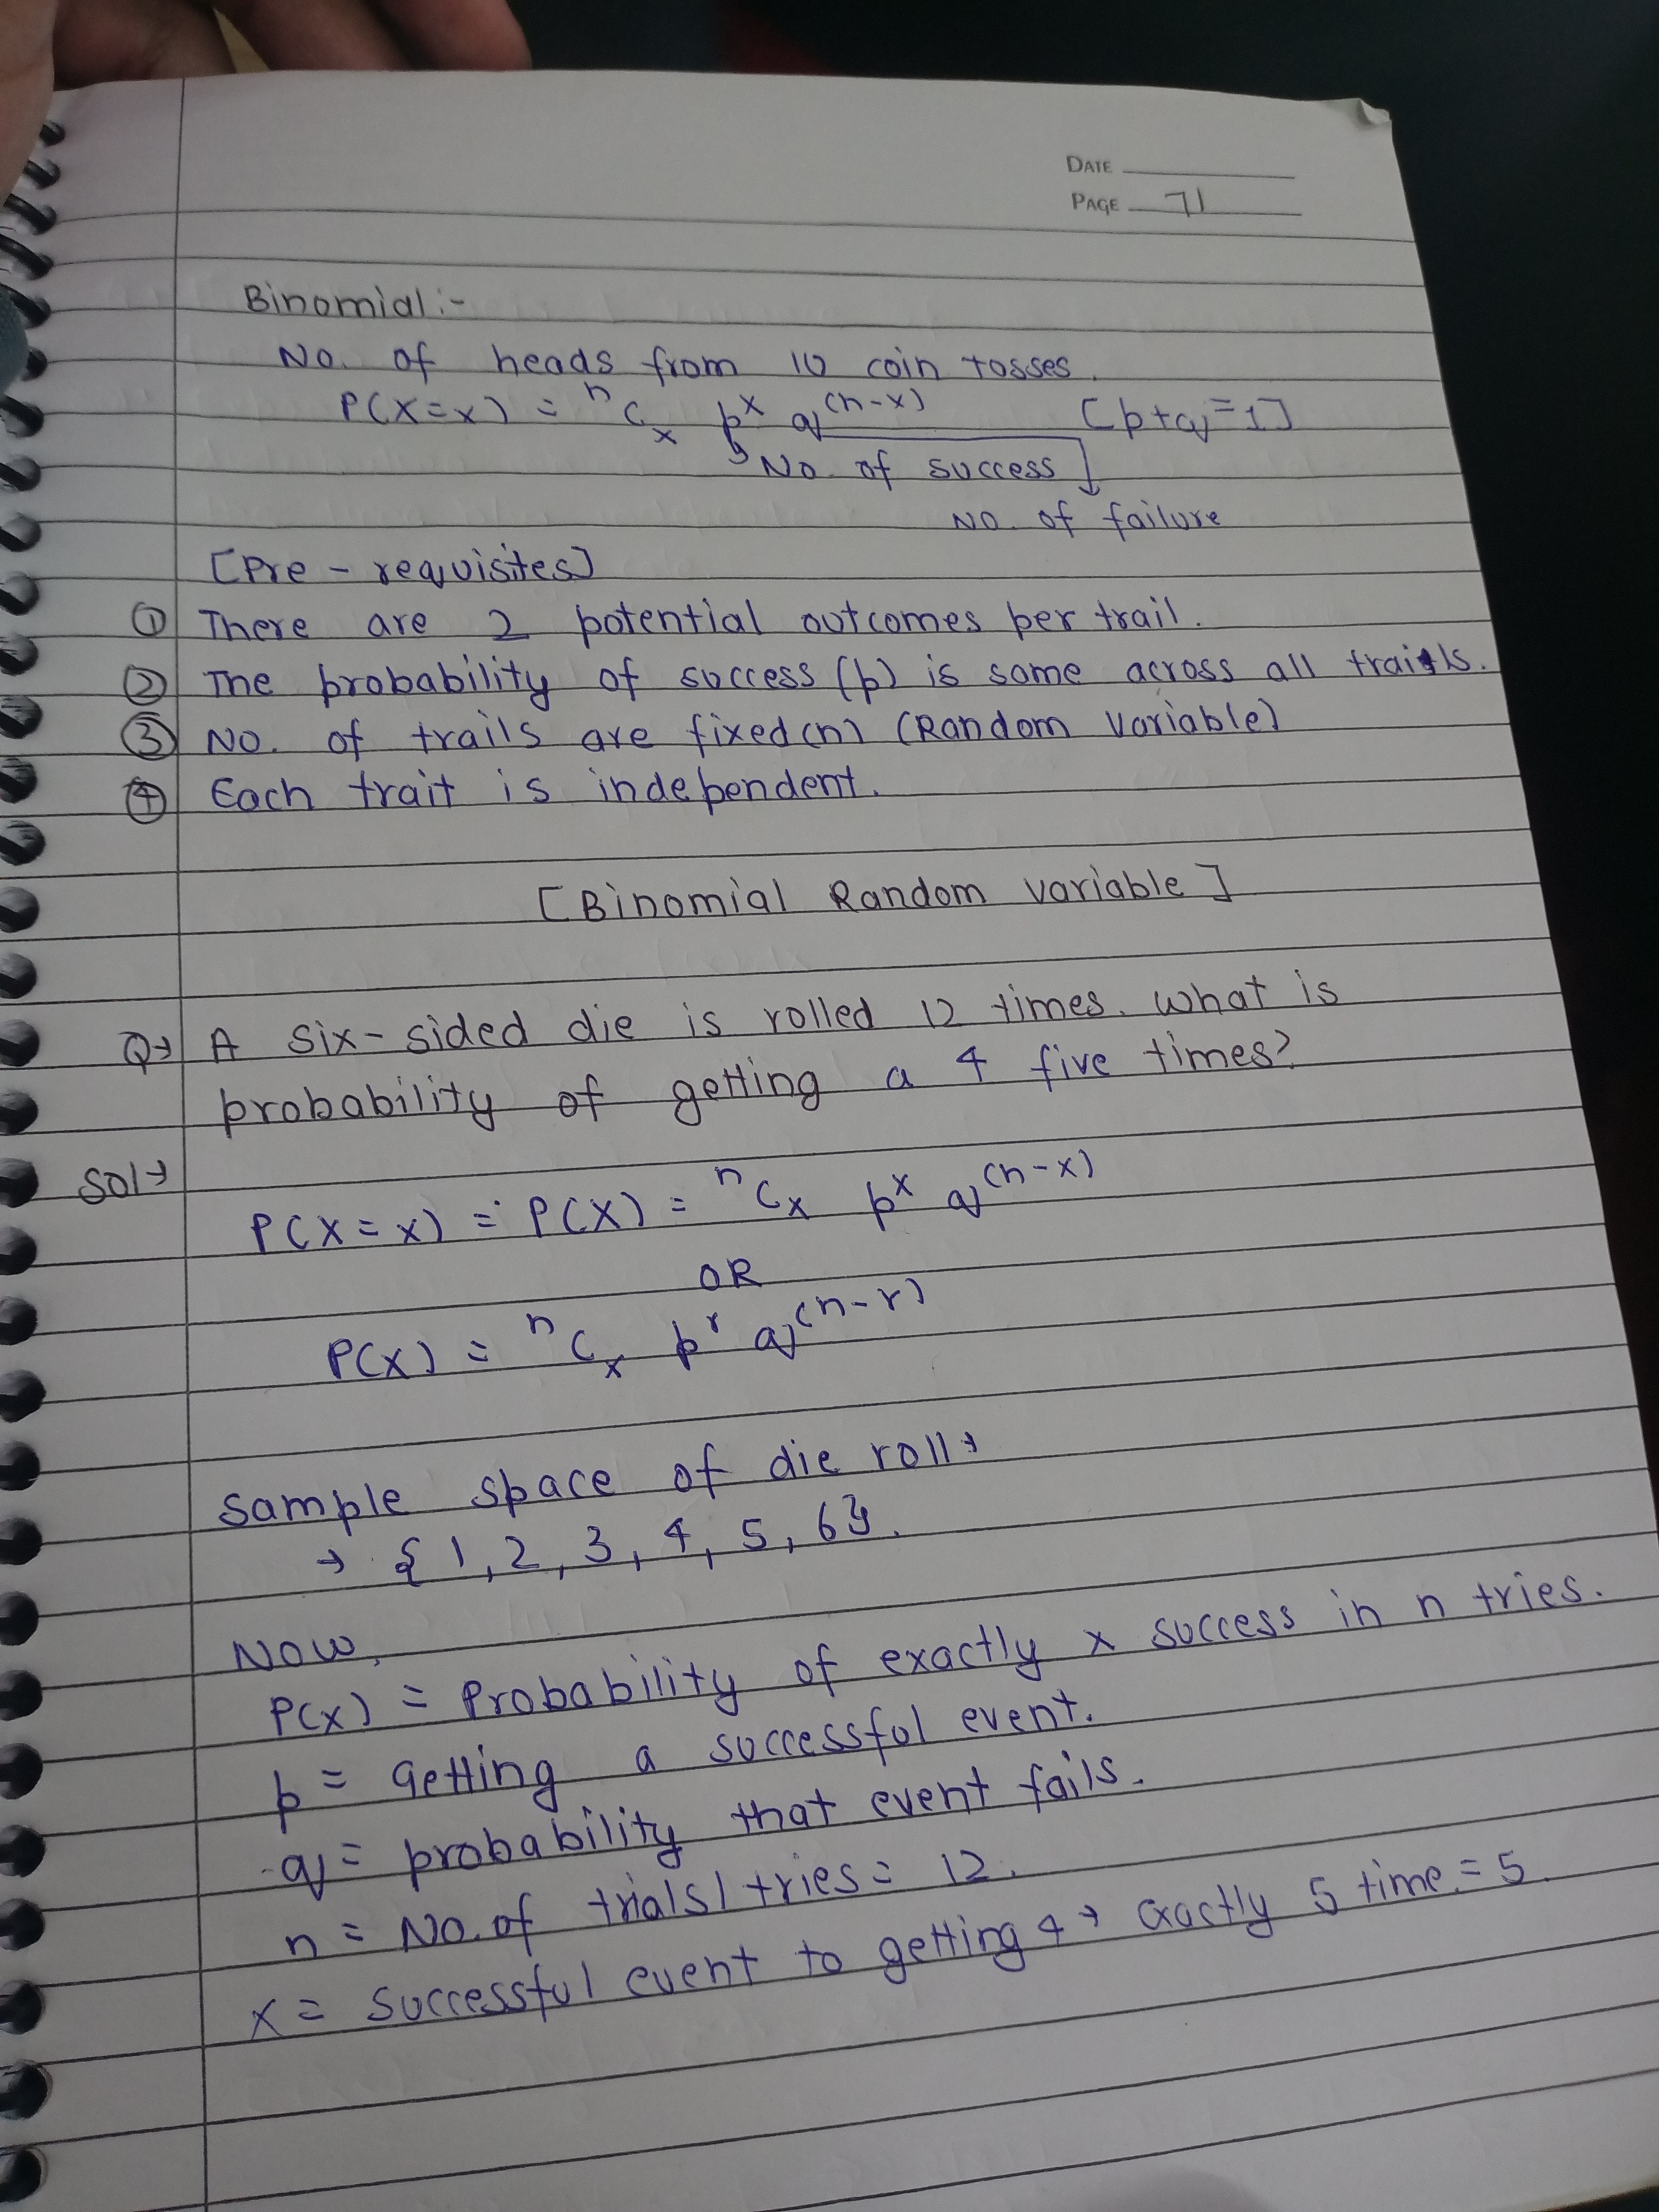 DATE
PAGE 71
Binomial:-
No. of heads from 10 coin tosses.
P(X=x) = ⁿCₓ pˣ q⁽ⁿ⁻ˣ⁾ [p+q=1]
No. of success
No. of failure
[Pre-requisites]
① There are 2 potential outcomes per trail.
② The probability of success (p) is same across all traials.
③ No. of trails are fixed(n) (Random Variable)
④ Each trait is independent.
[Binomial Random variable]
Q→ A six-sided die is rolled 12 times. what is
probability of getting a 4 five times?
Sol→
P(X=x) = P(X) = ⁿCₓ pˣ q⁽ⁿ⁻ˣ⁾
OR
P(X) = ⁿCₓ pʳ q⁽ⁿ⁻ʳ⁾
Sample space of die roll→
→ {1, 2, 3, 4, 5, 6}.
Now,
P(X) = Probability of exactly x success in n tries.
p = Getting a successful event.
q = probability that event fails.
n = No. of trials/tries = 12.
x = Successful event to getting 4 → exactly 5 time. = 5.